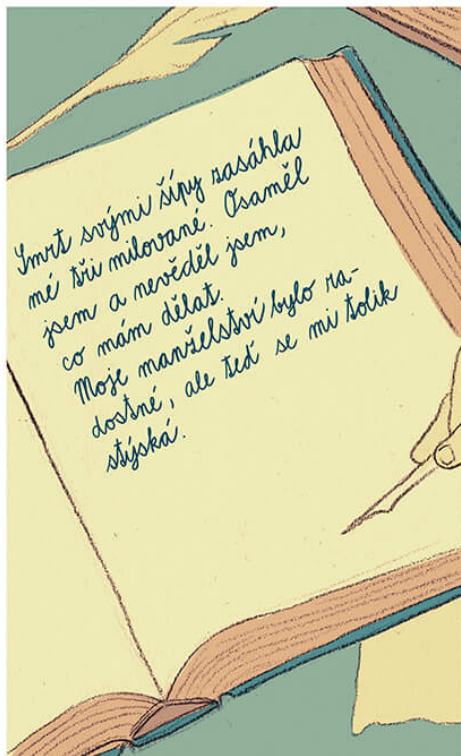 Smrt svými šípy zasáhla
mé tři milované. Osaměl
jsem a nevěděl jsem,
co mám dělat.
Moje manželství bylo ra-
dostné, ale teď se mi tolik
stýská.